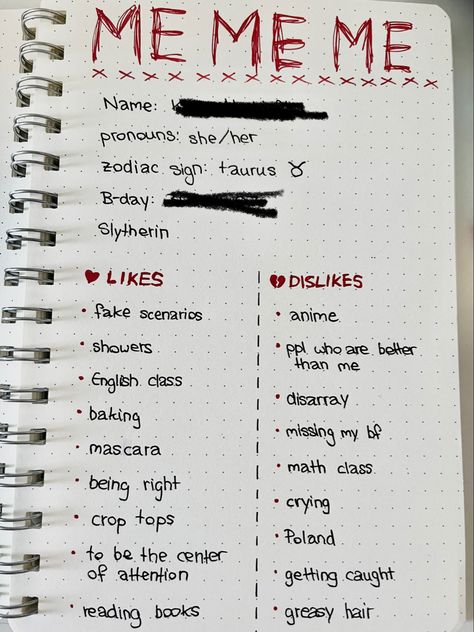 ME ME ME
Name:
pronouns: she/her
zodiac sign: taurus ♉
B-day:
Slytherin
LIKES
• fake scenarios
• showers
• English class
• baking
• mascara
• being right
• crop tops
• to be the center
of attention
• reading books
DISLIKES
• anime
• ppl who are better
than me
• disarray
• missing my bf
• math class
• crying
• Poland
• getting caught
• greasy hair